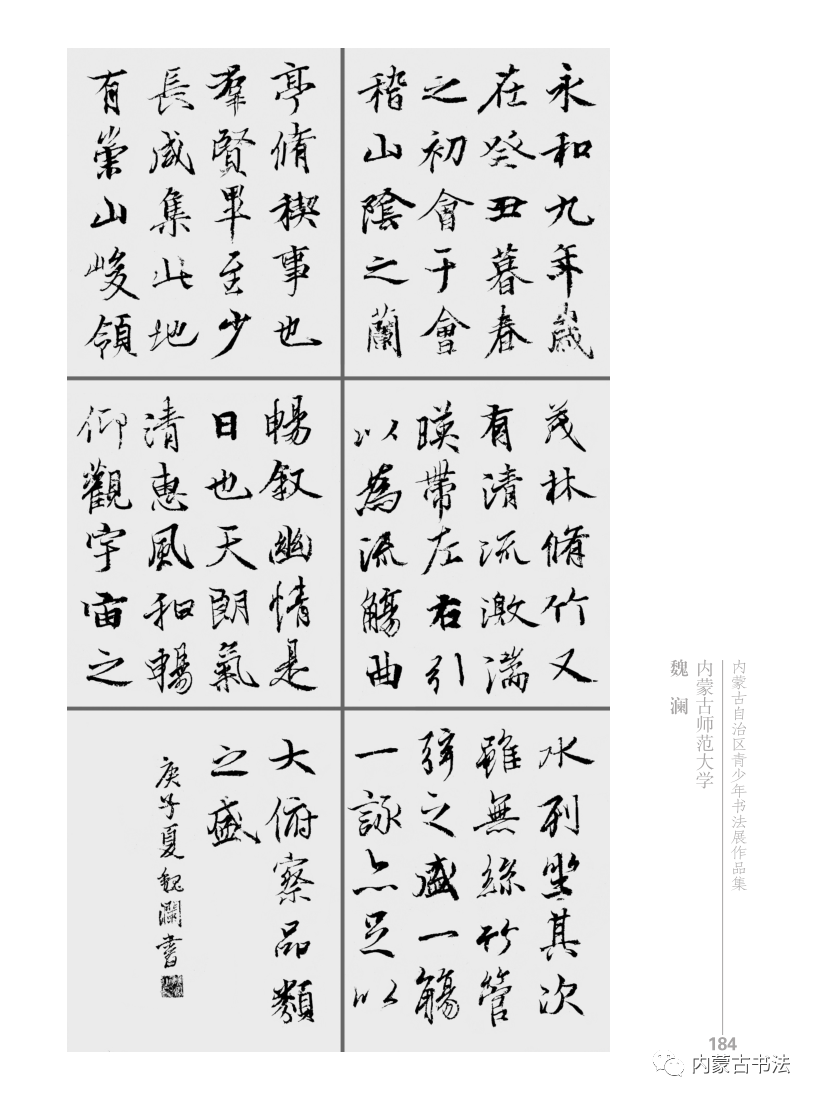 永和九年歲
在癸丑暮春
之初會于會
稽山陰之蘭
亭脩稧事也
羣賢畢至少
長咸集此地
有崇山峻領
茂林脩竹又
有清流激湍
暎帶左右引
以為流觴曲
水列坐其次
雖無絲竹管
弦之盛一觴
一詠亦足以
暢叙幽情是
日也天朗氣
清惠風和暢
仰觀宇宙之
大俯察品類
之盛
庚子夏魏瀾書
内蒙古自治区青少年书法展作品集
内蒙古师范大学
魏 澜
184
内蒙古书法